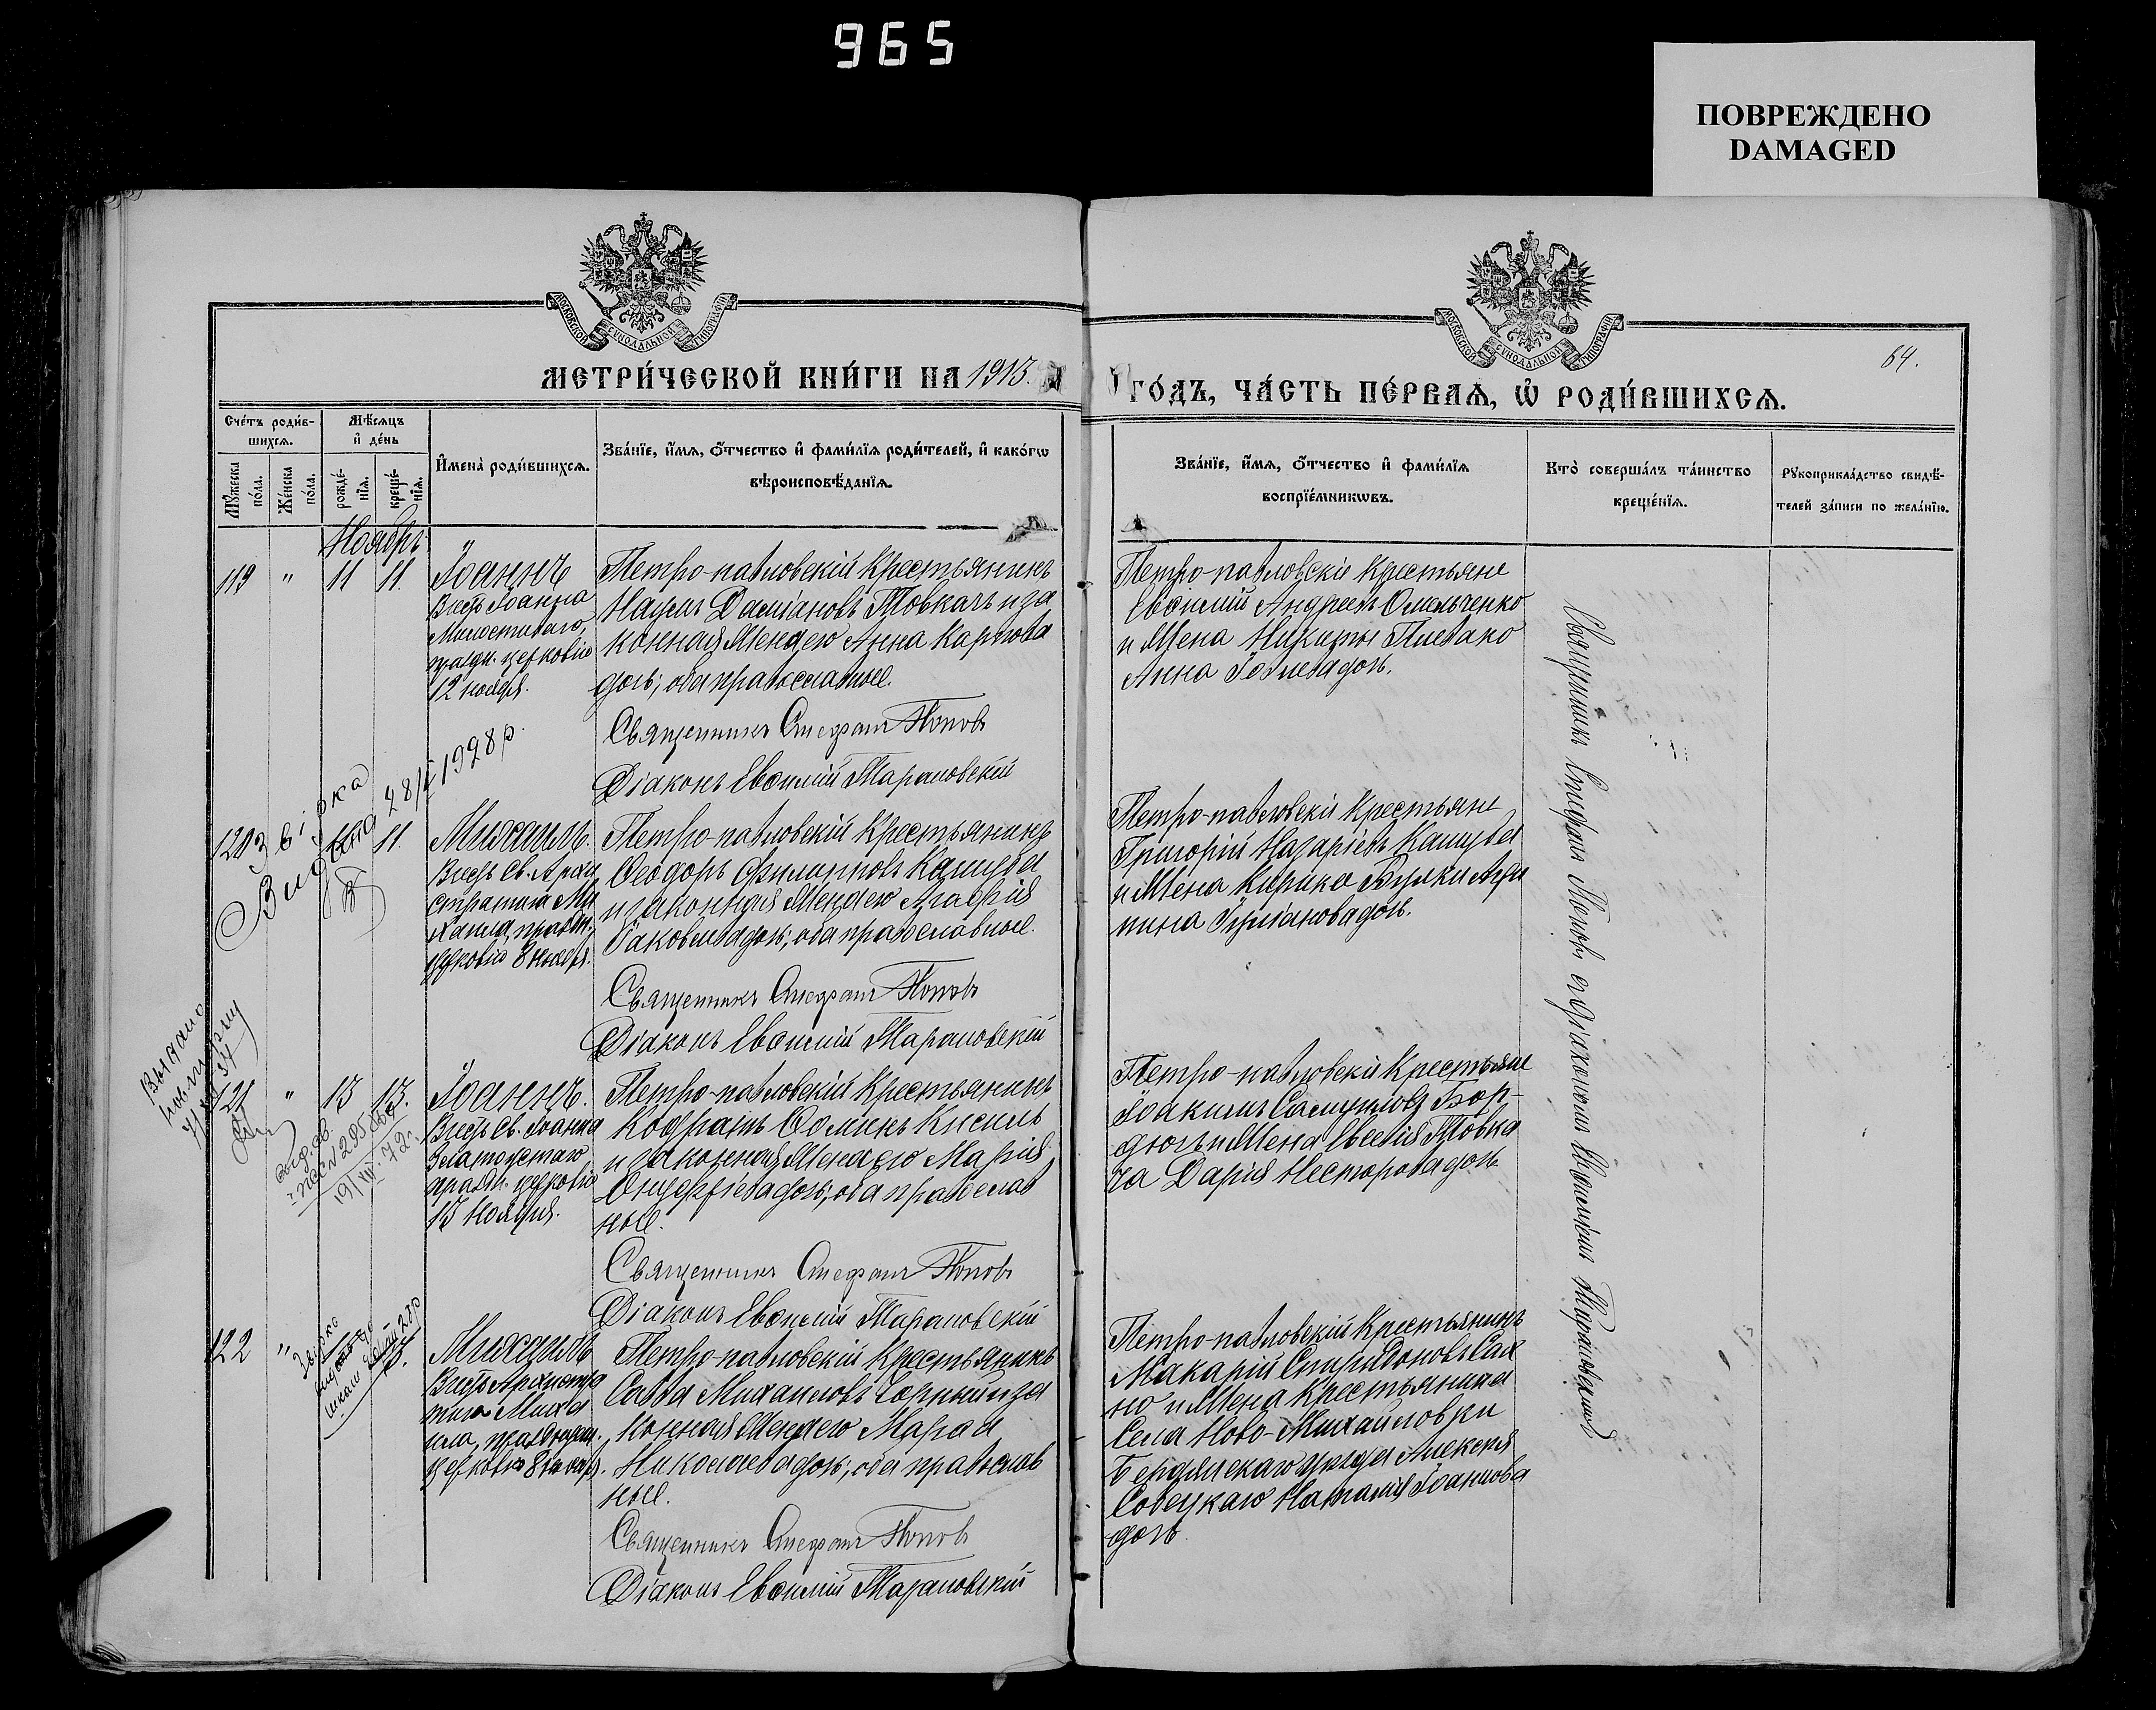 965
ПОВРЕЖДЕНО
DAMAGED
МОСКОВСКОЙ СѴНОДАЛЬНОЙ ТИПОГРАФІИ
МОСКОВСКОЙ СѴНОДАЛЬНОЙ ТИПОГРАФІИ
64.
МЕТРИ́ЧЕСКОЙ КНИ́ГИ НА 1913.
ГО́ДЪ, ЧА́СТЬ ПЕ́РВАѦ, Ѡ҆ РОДИ́ВШИХСѦ.
Сче́тъ роди́в-
шихсѧ.
Мꙋ́жеска
по́ла.
Же́нска
по́ла.
Мѣ́сѧцъ
и҆ де́нь
рожде́-
нїѧ.
креще́-
нїѧ.
И҆мена̀ роди́вшихсѧ.
Зва́нїе, и҆́мѧ, ѻ҆́тчество и҆ фами́лїѧ роди́телей, и҆ како́гѡ
вѣроисповѣ́данїѧ.
Зва́нїе, и҆́мѧ, ѻ҆́тчество и҆ фами́лїѧ
воспрїе́мникѡвъ.
Кто̀ соверша́лъ та́инство
креще́нїѧ.
Рꙋкоприкла́дство свидѣ́-
телей за́писи по жела́нїю.
Ноябрь
119 " 11 11.
Іоаннъ
Въ честь Іоанна
Милостиваго,
празд. церковію
12 ноября.
Петро-павловскій крестьянинъ
Наумъ Даміановъ Товкачъ и за
конная жена его Анна Карпова
дочь; оба православные.
Священникъ Стефанъ Поповъ
Діаконъ Евѳимій Тарановскій
Петро-павловскіе крестьяне
Евѳимій Андреевъ Омельченко
и жена Никиты Плевако
Анна дочь.
Звірка
Видана 28/ 1928 р.
120 11.
Михаилъ.
Въ честь Св. Архи
стратига Ми
хаила, празд.
церковію 8 ноября.
Петро-павловскій крестьянинъ
Ѳеодоръ Филипповъ Кащуба
и законная жена его Агаѳія
Іаковлева дочь; оба православные.
Священникъ Стефанъ Поповъ
Діаконъ Евѳимій Тарановскій
Петро-павловскіе крестьяне
Григорій Назаріевъ Кащуба
и жена Кирика Булки Агри
пина дочь.
Выдано
повторну
121 " 13 13.
№ 295
19/VIII 72 г.
Іоаннъ.
Въ честь Св. Іоанна
Златоустаго
празд. церковію
13 Ноября.
Петро-павловскій крестьянинъ
Кодратъ Ѳоминъ Кисиль
и законная жена его Марія
Онуфріева дочь; оба православ
ные.
Священникъ Стефанъ Поповъ
Діаконъ Евѳимій Тарановскій
Петро-павловскіе крестьяне
Іоакимъ Самуиловъ Бор-
дюгъ и жена Евсевія Товка
ча Дарія Несторова дочь
122 "
Звірка
Михаилъ
Въ честь Архистра
тига Миха
ила, празднуем.
церковію 8 ноябр.
Петро-павловскій крестьянинъ
Савва Михаиловъ Чорный и за
конная жена его Марѳа
Николаева дочь; оба православ
ные.
Священникъ Стефанъ Поповъ
Діаконъ Евѳимій Тарановскій
Петро-павловскій крестьянинъ
Макарій Спиридоновъ Сах
но и жена крестьянина
села Ново-Михайловки
Бердянскаго уѣзда Алексея
Совецкаго Наталія Іоаннова
дочь.
Священникъ Стефанъ Поповъ съ діакономъ Евѳиміемъ Тарановскимъ